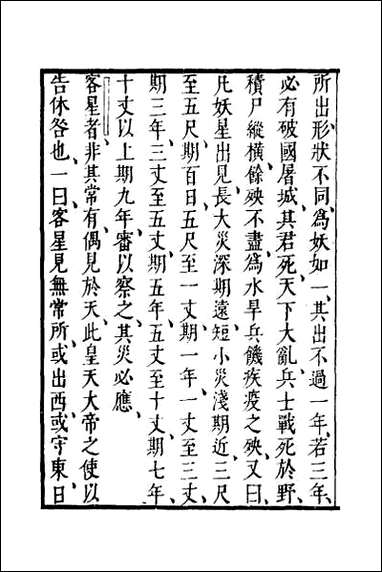 所出形狀不同、爲妖如一、其出不過一年、若三年、
必有破國屠城、其君死、天下大亂、兵士戰死於野、
積尸縱橫、餘殃不盡、爲水旱兵饑疾疫之殃、又曰、
凡妖星出見、長大災深期遠、短小災淺期近、三尺
至五尺、期百日、五尺至一丈、期一年、一丈至三丈、
期三年、三丈至五丈、期五年、五丈至十丈、期七年、
十丈以上、期九年、審以察之、其災必應、
客星者、非其常有、偶見於天、此皇天大帝之使、以
告休咎也、一曰、客星見無常所、或出西、或守東、日